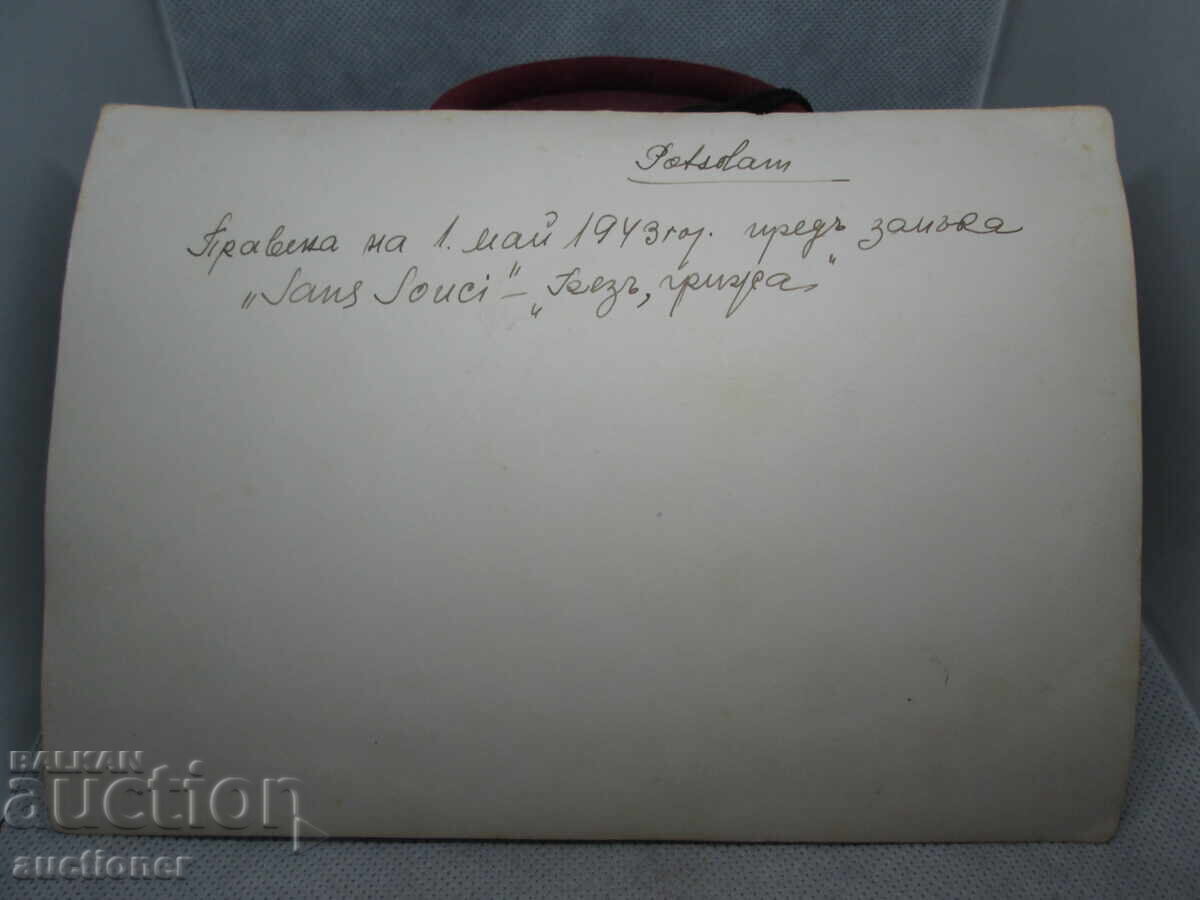 Potsdam
Правена на 1. май 1943 год. предъ замъка
„Sans Souci" – „Безъ, грижа"
BALKAN
auction
auctioner